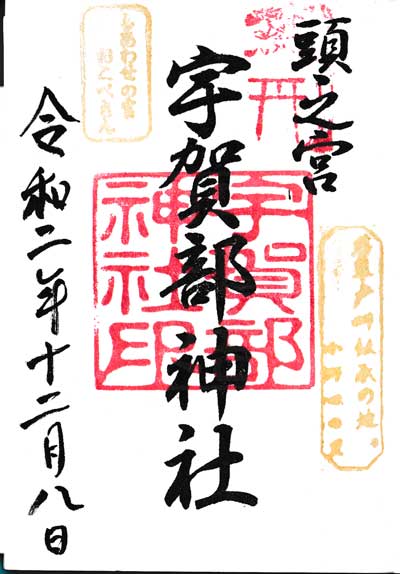 頭之宮
宇賀部神社
宇賀部
神社印
しあわせの宮
令和二年十二月八日